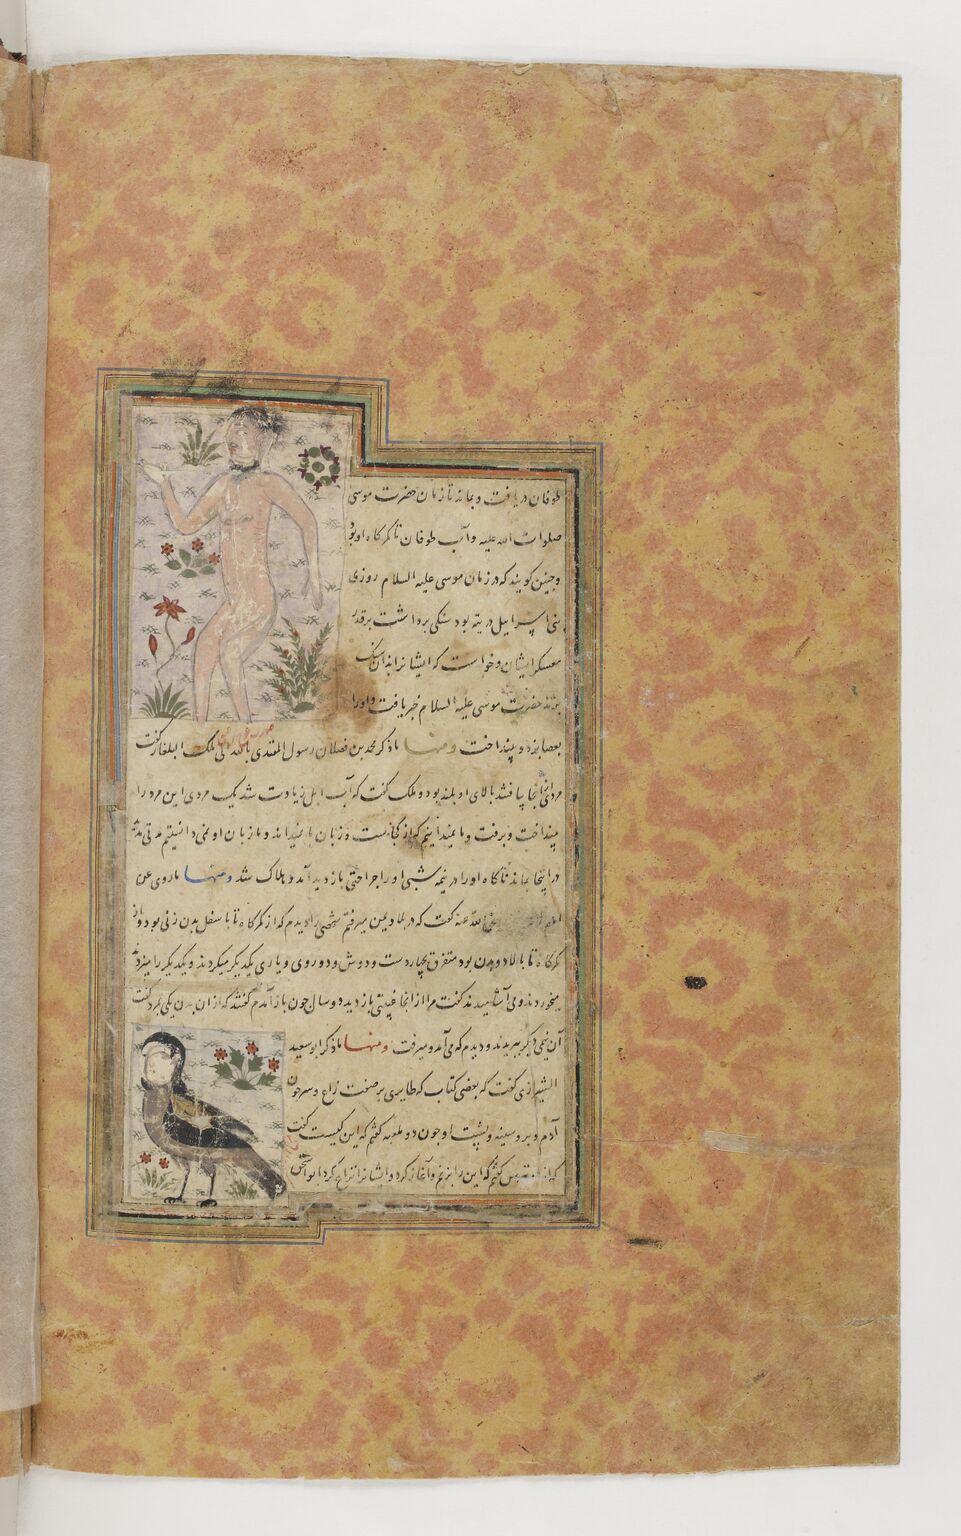 طوفان دریافت و بماند تا زمان حضرت موسی
صلوات الله علیه و آب طوفان تا کمرکاه او بود
و چنین کویند که در زمان موسی علیه السلام روزی
بنی اسراییل در تیه بود سنکی برداشت بر قدر
معسکر ایشان و خواست که ایشانرا بدان سنک
بزند حضرت موسی علیه السلام خبر یافت و اورا
بعصا بزد و بینداخت ومنها ما ذکر محمد بن فضلان رسول المقتدی بالله الی ملک البلغار کفت
مردی آنجا یافتند بالای او بلند بود و ملک کفت که آب اتل زیادت شد یک مردی این مرد را
بینداخت و برفت و ما نمیدانیم که از کجاست و زبان ما نمیداند و ما زبان او نمی دانستیم مدتی شد
در اینجا بماند ناکاه اورا در نیمه شبی او را جراحتی بازدید آمد و هلاک شد ومنها ما روی عن
الله عنه کفت که در بلاد یمن میرفتم شخصی را دیدم که از کمرکاه تا باسفل بدن زنی بود و از
کمرکاه تا بالا دو بدن بود متفرق بچهار دست و دوش و دو روی و بازی یکدیکر میکردند و یکدیکر را میزدند
میخوردند و می آشامیدند کفت مرا از آنجا غیبتی بازدید دو سال چون باز آمدم کفتند که از ان بدن یکی بمرد کفت
آن نیمی دیکر ببریدند و دیدم که می آمد و میرفت ومنها ما ذکر ابو سعید
الشیرازی کفت که بعضی کتاب که طایری بر صفت زاغ و سر چون
آدم و بر و سینه و پشت او چون دو ملعبه کفتم که این کیست کفت
کفتم که این را بزنم و آغاز کرد و ایشانرا نزاع کرد